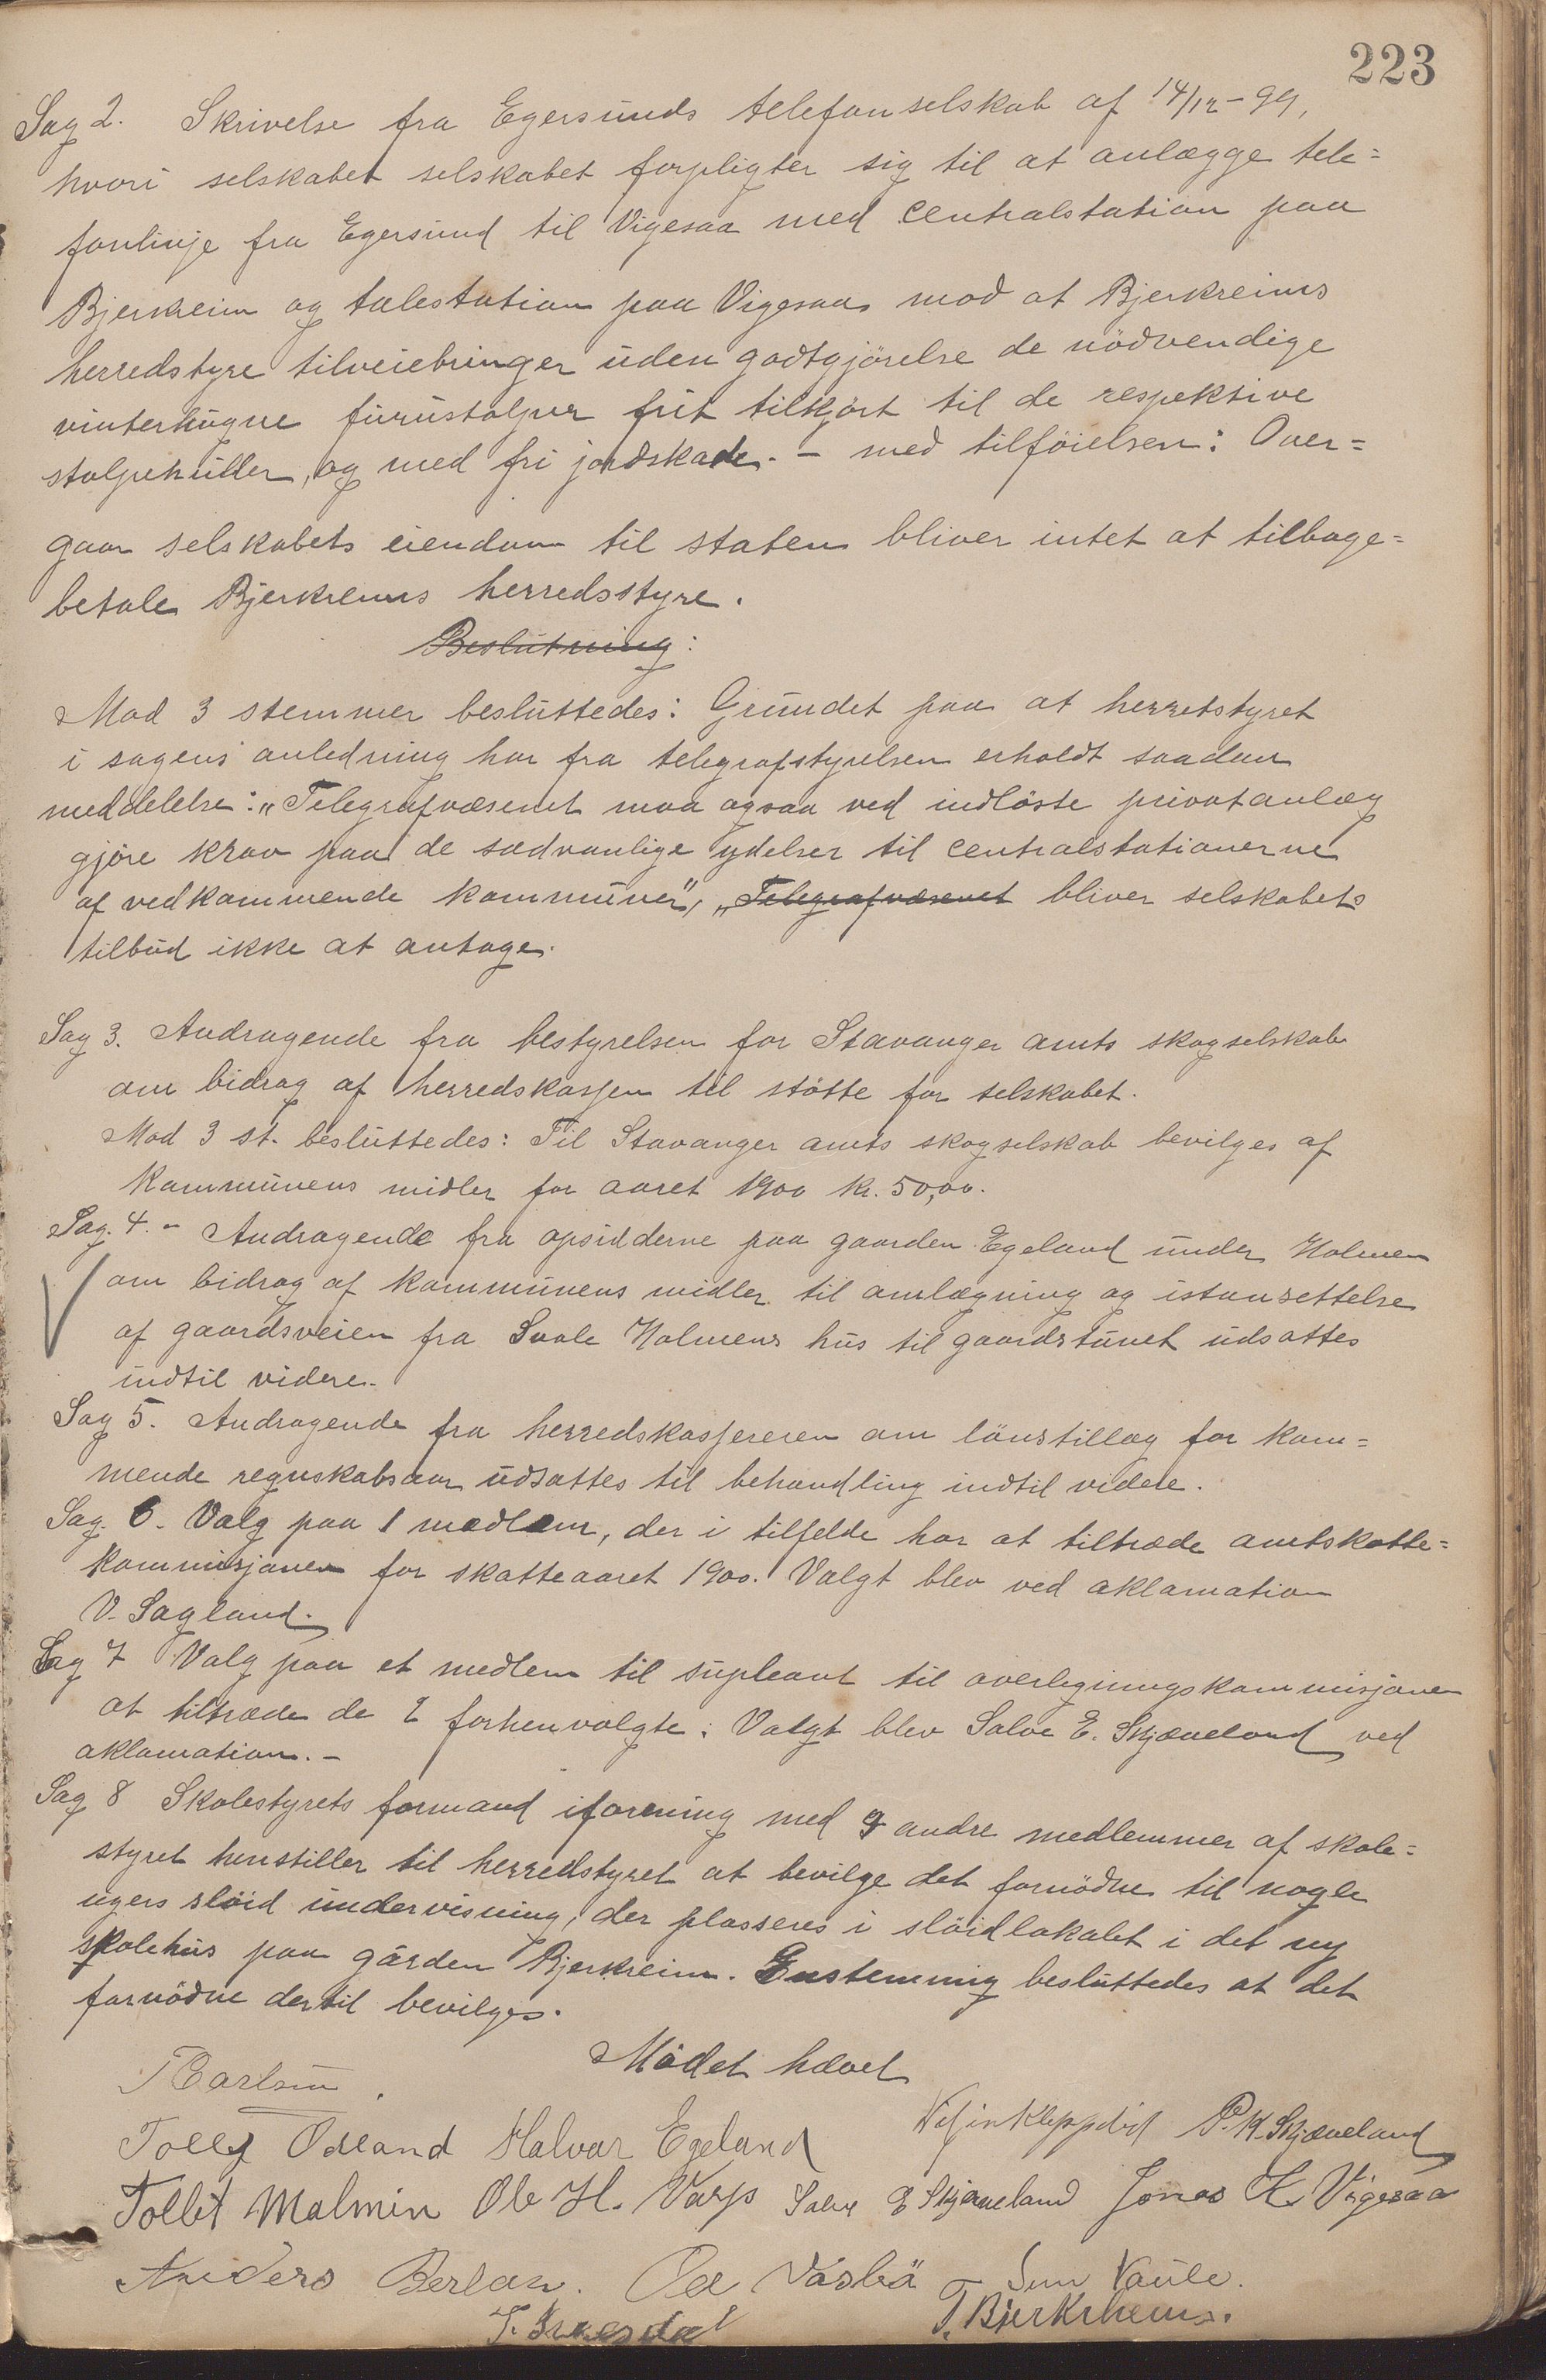 223
Sag 2. Skrivelse fra Egersunds telefonselskab af 14/12-99,
hvori selskabet selskabet forpligter sig til at anlægge tele=
fonlinje fra Egersund til Vigesaa med centralstation paa
Bjerkreim og talestation paa Vigesaa mod at Bjerkreims
herredstyre tilveiebringer uden godtgjörelse de nödvendige
vinterhugne furustolper frit tilkjørt til de respektive
stolpehuller, og med fri jordskade. – med tilföielsen: Over=
gaar selskabets eiendom til staten bliver intet at tilbage=
betale Bjerkreims herredsstyre.
Beslutning:
Mod 3 stemmer besluttedes: Grundet paa at herretstyret
i sagens anledning har fra telegrafstyrelsen erholdt saadan
meddelelse: „Telegrafvæsenet maa ogsaa ved indlöste privatanlæg
gjöre krav paa de sædvanlige ydelser til centralstationerne
af vedkommende kommuner", „Telegrafvæsenet bliver selskabets
tilbud ikke at antage.
Sag 3. Andragende fra bestyrelsen for Stavanger amts skogselskab
om bidrag af herredskassen til stötte for selskabet.
Mod 3 st. besluttedes: Til Stavanger amts skogselskab bevilges af
Kommunens midler for aaret 1900 kr. 50,00.
Sag. 4. - Andragende fra opsidderne paa gaarden Egeland under Holmen
om bidrag af kommunens midler til omlægning og istansettelse
af gaardsveien fra Svale Holmens hus til gaardstunet udsattes
indtil videre.
Sag 5. Andragende fra herredskassereren om lönstillæg for kom=
mende regnskabsaar udsattes til behandling indtil videre.
Sag. 6. Valg paa 1 medlem, der i tilfelde har at tiltræde amtskatte=
kommisjonen for skatteaaret 1900. Valgt blev ved aklamation
V. Sagland.
Sag 7 Valg paa et medlem til supleant til overligningskommisjonen
at tiltræde de 2 forhenvalgte: Valgt blev Salve E. Skjæveland ved
aklamation. –
Sag 8 Skolestyrets formand iforening med 9 andre medlemmer af skole=
styret henstiller til herredstyret at bevilge det fornödne til nogle
ugers slöid undervisning, der plasseres i slöidlokalet i det ny
skolehus paa gården Bjerkreim. Enstemmig besluttedes at det
fornödne dertil bevilges.
Mödet hævet
T Carlsen.
Tollef Odland Halvar Egeland P. K. Skjæveland
Tollet Malmin Ole H. Varp Salve E Skjæveland Jonas K. Vigesaa
Anders Berlan. Ole Vasbö Sem Vaule.
T. Bjerkrheim.